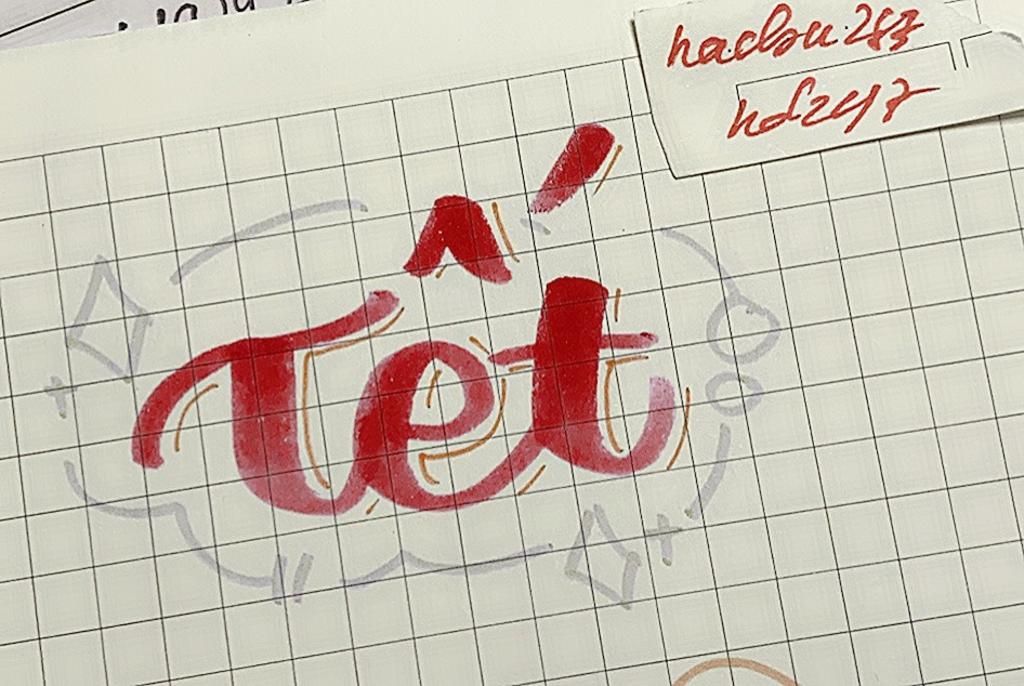 hacbu.283
hd247
Tết